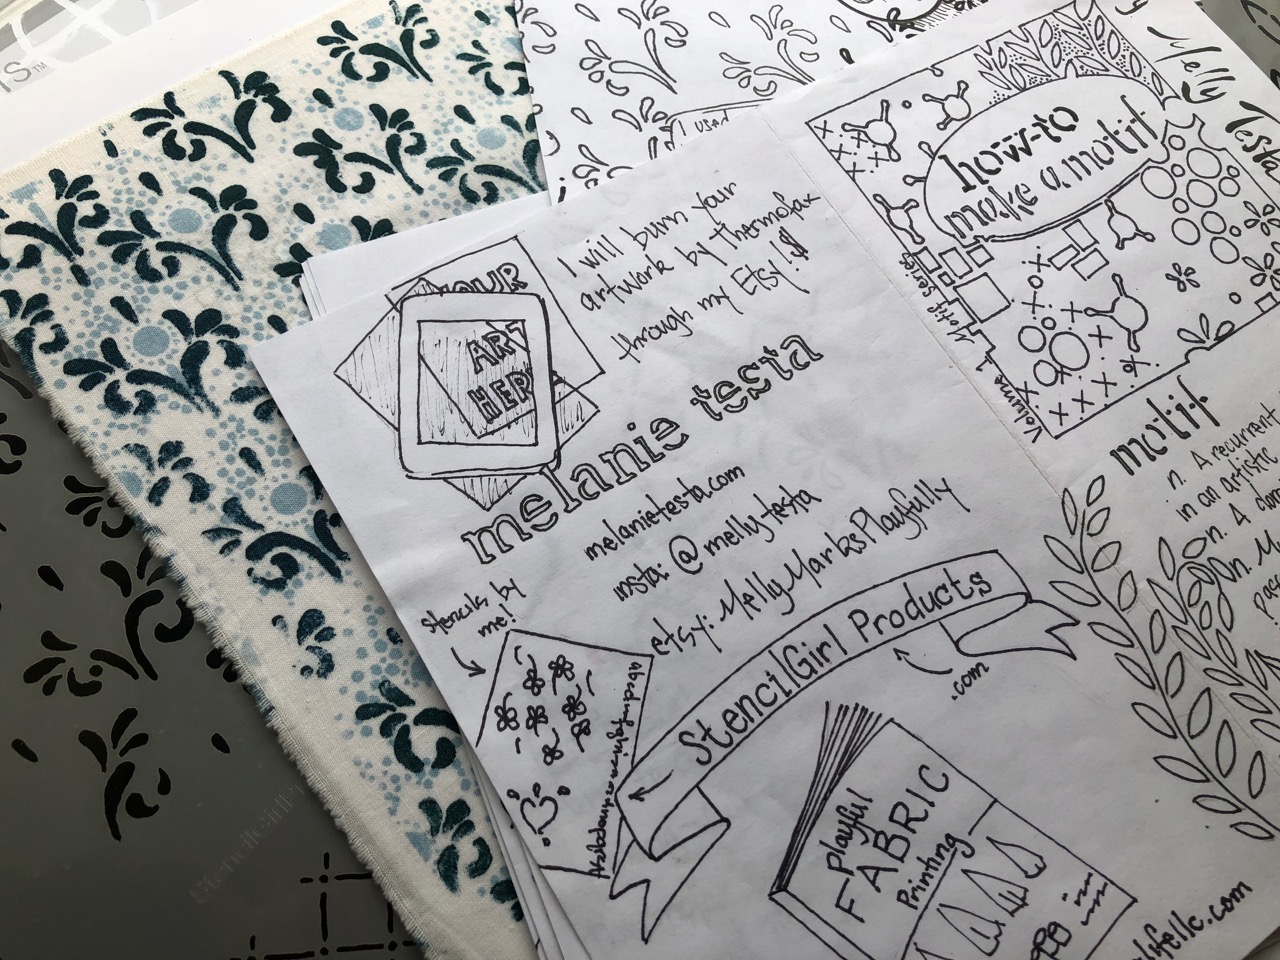 S™
I used
I will burn your
artwork by Thermofax
through my Etsy! $
YOUR
ART
HERE
melanie testa
melanietesta.com
insta: @mellytesta
etsy: MellyMarksPlayfully
stencils by
me!
StencilGirl Products
.com
Playful
FABRIC
Printing
Melly
Testa
how-to
make a motif
Volume 1 Motif Series
motif
n. A recurrent
in an artistic
n. A dom
n. M